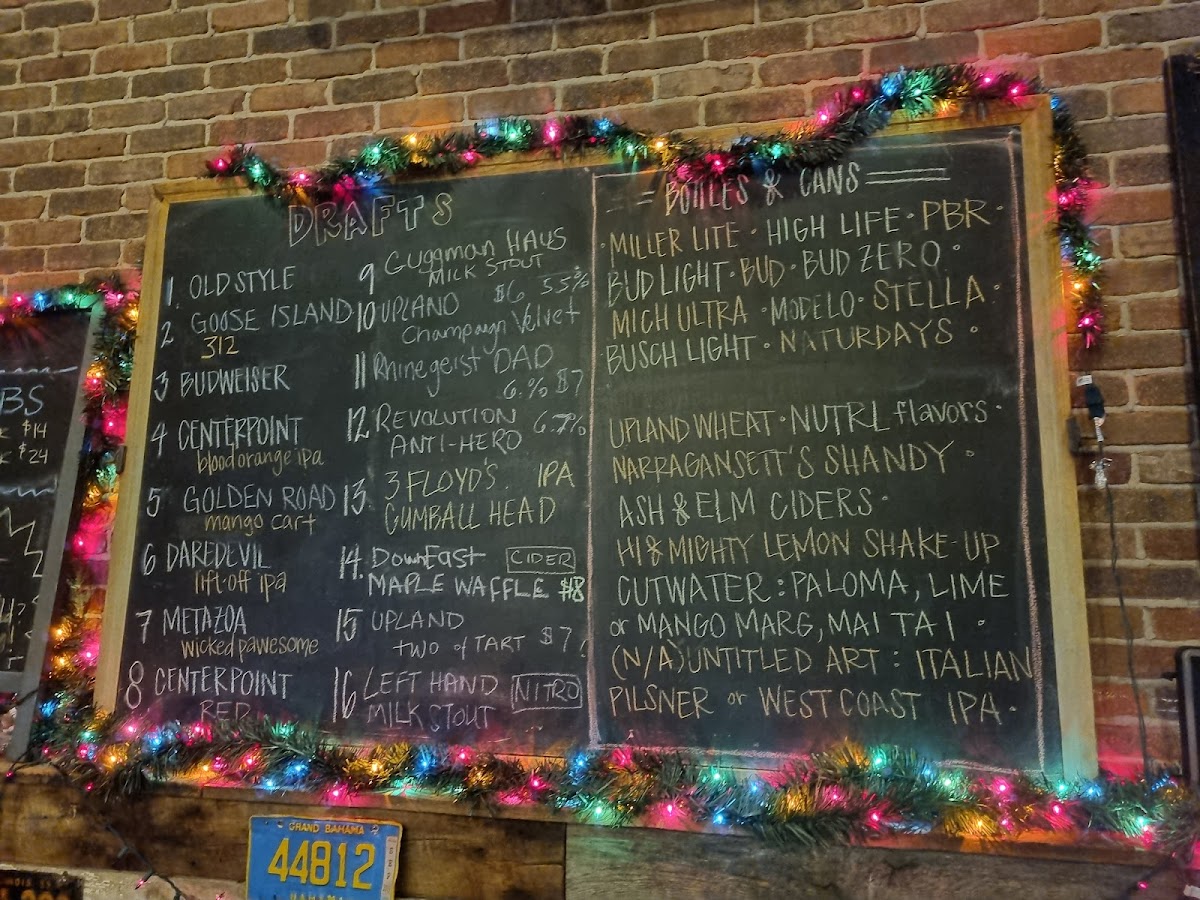 DRAFTS
1. OLD STYLE
2 GOOSE ISLAND
312
3 BUDWEISER
4 CENTERPOINT
blood orange ipa
5 GOLDEN ROAD
mango cart
6 DAREDEVIL
lift-off ipa
7 METAZOA
wicked pawesome
8 CENTERPOINT
RED
9 Guggman HAUS
MILK STOUT
10 UPLAND $6 5.5%
Champagn Velvet
11 Rhinegeist DAD
6.% $7
12 REVOLUTION 6.7%
ANTI-HERO
13. 3 FLOYD'S. IPA
GUMBALL HEAD
14. DownEast CIDER
MAPLE WAFFLE $8
15 UPLAND
TWO of TART $7
16 LEFT HAND NITRO
MILK STOUT
BOTTLES & CANS
· MILLER LITE · HIGH LIFE · PBR ·
BUD LIGHT · BUD · BUD ZERO ·
MICH ULTRA · MODELO · STELLA ·
BUSCH LIGHT · NATURDAYS ·
UPLAND WHEAT · NUTRL flavors ·
NARRAGANSETT'S SHANDY ·
ASH & ELM CIDERS ·
HI & MIGHTY LEMON SHAKE-UP
CUTWATER : PALOMA, LIME
or MANGO MARG, MAI TAI ·
(N/A) UNTITLED ART : ITALIAN
PILSNER or WEST COAST IPA ·
BS
$14
$24
GRAND BAHAMA
44812
BAHAMA